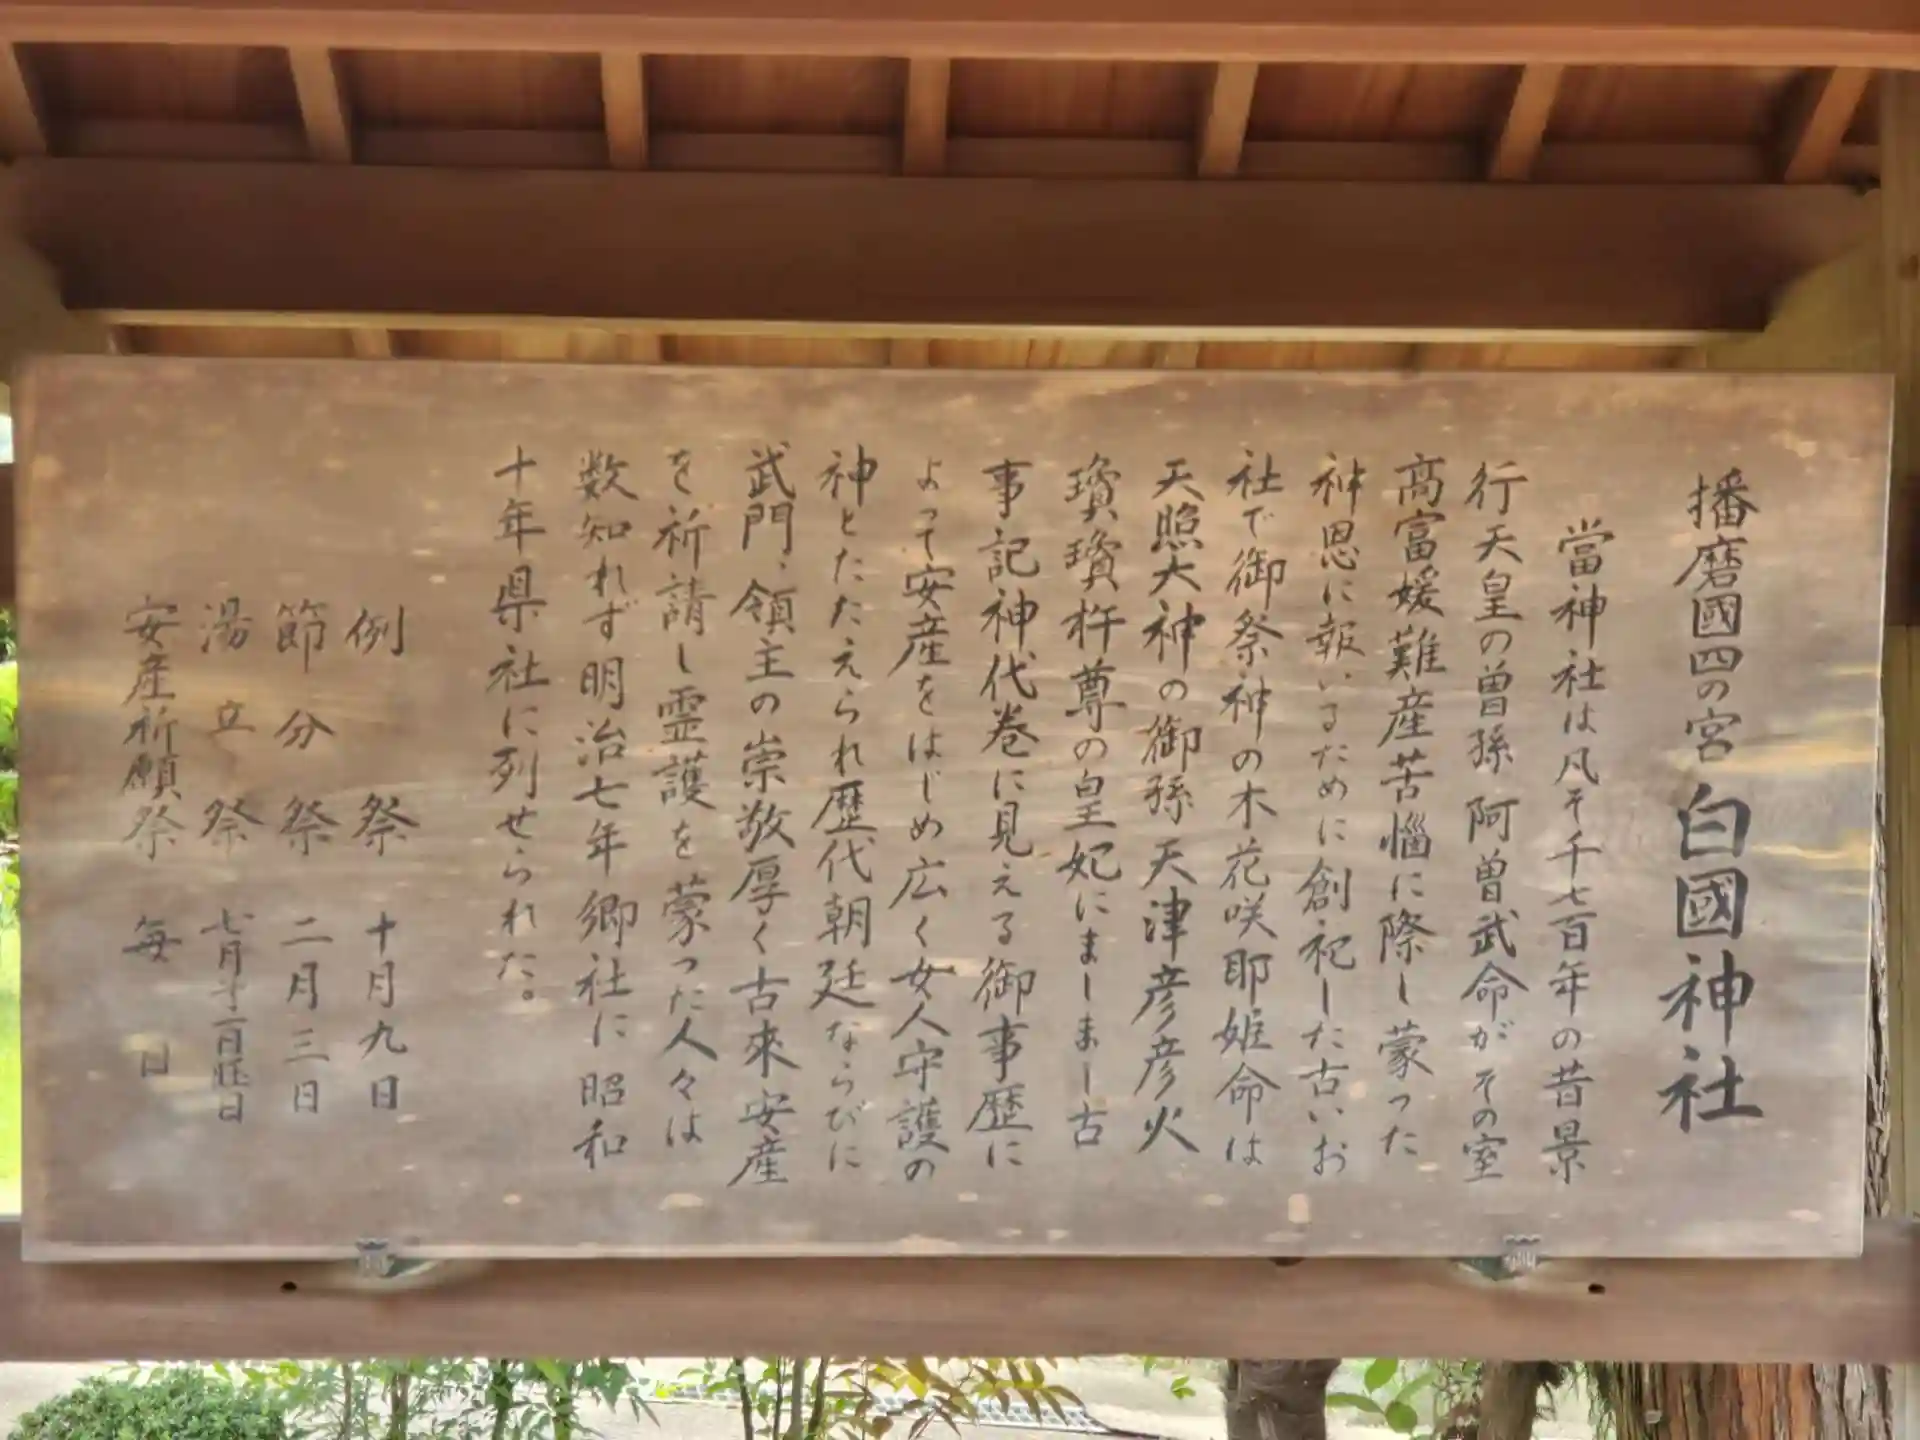 播磨國四の宮 白國神社
當神社は凡そ千七百年の昔景
行天皇の曽孫 阿曽武命がその室
高富媛難産苦悩に際し蒙った
神恩に報いるために創祀した古いお
社で御祭神の木花咲耶姫命は
天照大神の御孫天津彦彦火
瓊瓊杵尊の皇妃にましまし古
事記神代巻に見える御事歴に
よって安産をはじめ広く女人守護の
神とたたえられ歴代朝廷ならびに
武門、領主の崇敬厚く古來安産
を祈請し霊護を蒙った人々は
数知れず明治七年郷社に昭和
十年県社に列せられた。
例祭 十月九日
節分祭 二月三日
湯立祭 七月
安産祈願祭 毎日